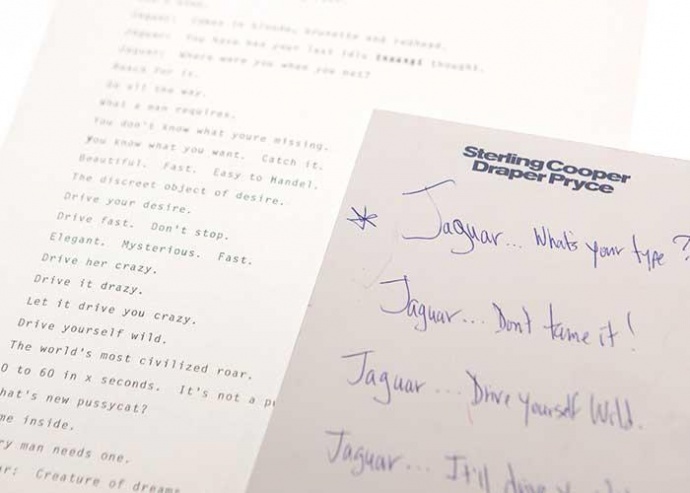 Jaguar: Comes in blonde, brunette and redhead.
Jaguar: You have had your last idle thought.
Jaguar: Where were you when you met?
Reach for it.
Go all the way.
What a man requires.
You don't know what youre missing.
You know what you want. Catch it.
Beautiful. Fast. Easy to Handel.
The discreet object of desire.
Drive your desire.
Drive fast. Don't stop.
Elegant. Mysterious. Fast.
Drive her crazy.
Drive it drazy.
Let it drive you crazy.
Drive yourself wild.
The world's most civilized roar.
0 to 60 in x seconds. It's not a
hat's new pussycat?
me inside.
ry man needs one.
ar: Creature of dreams
Sterling Cooper
Draper Pryce
* Jaguar... What's your type?
Jaguar... Don't tame it!
Jaguar... Drive Yourself Wild.
Jaguar... It'll drive